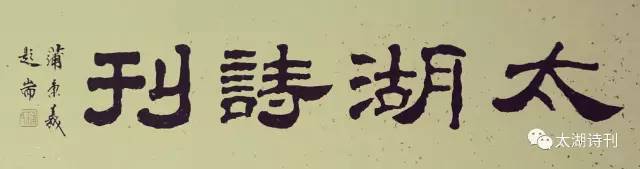 太湖詩刊
蒲義
題耑
太湖诗刊